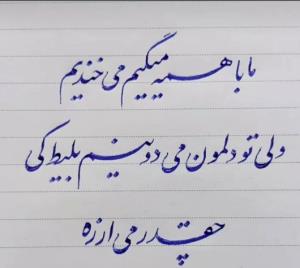 ما با همه میگیم می خندیم
ولی تو دلمون می دونیم بلیط کی
چقدر می ارزه